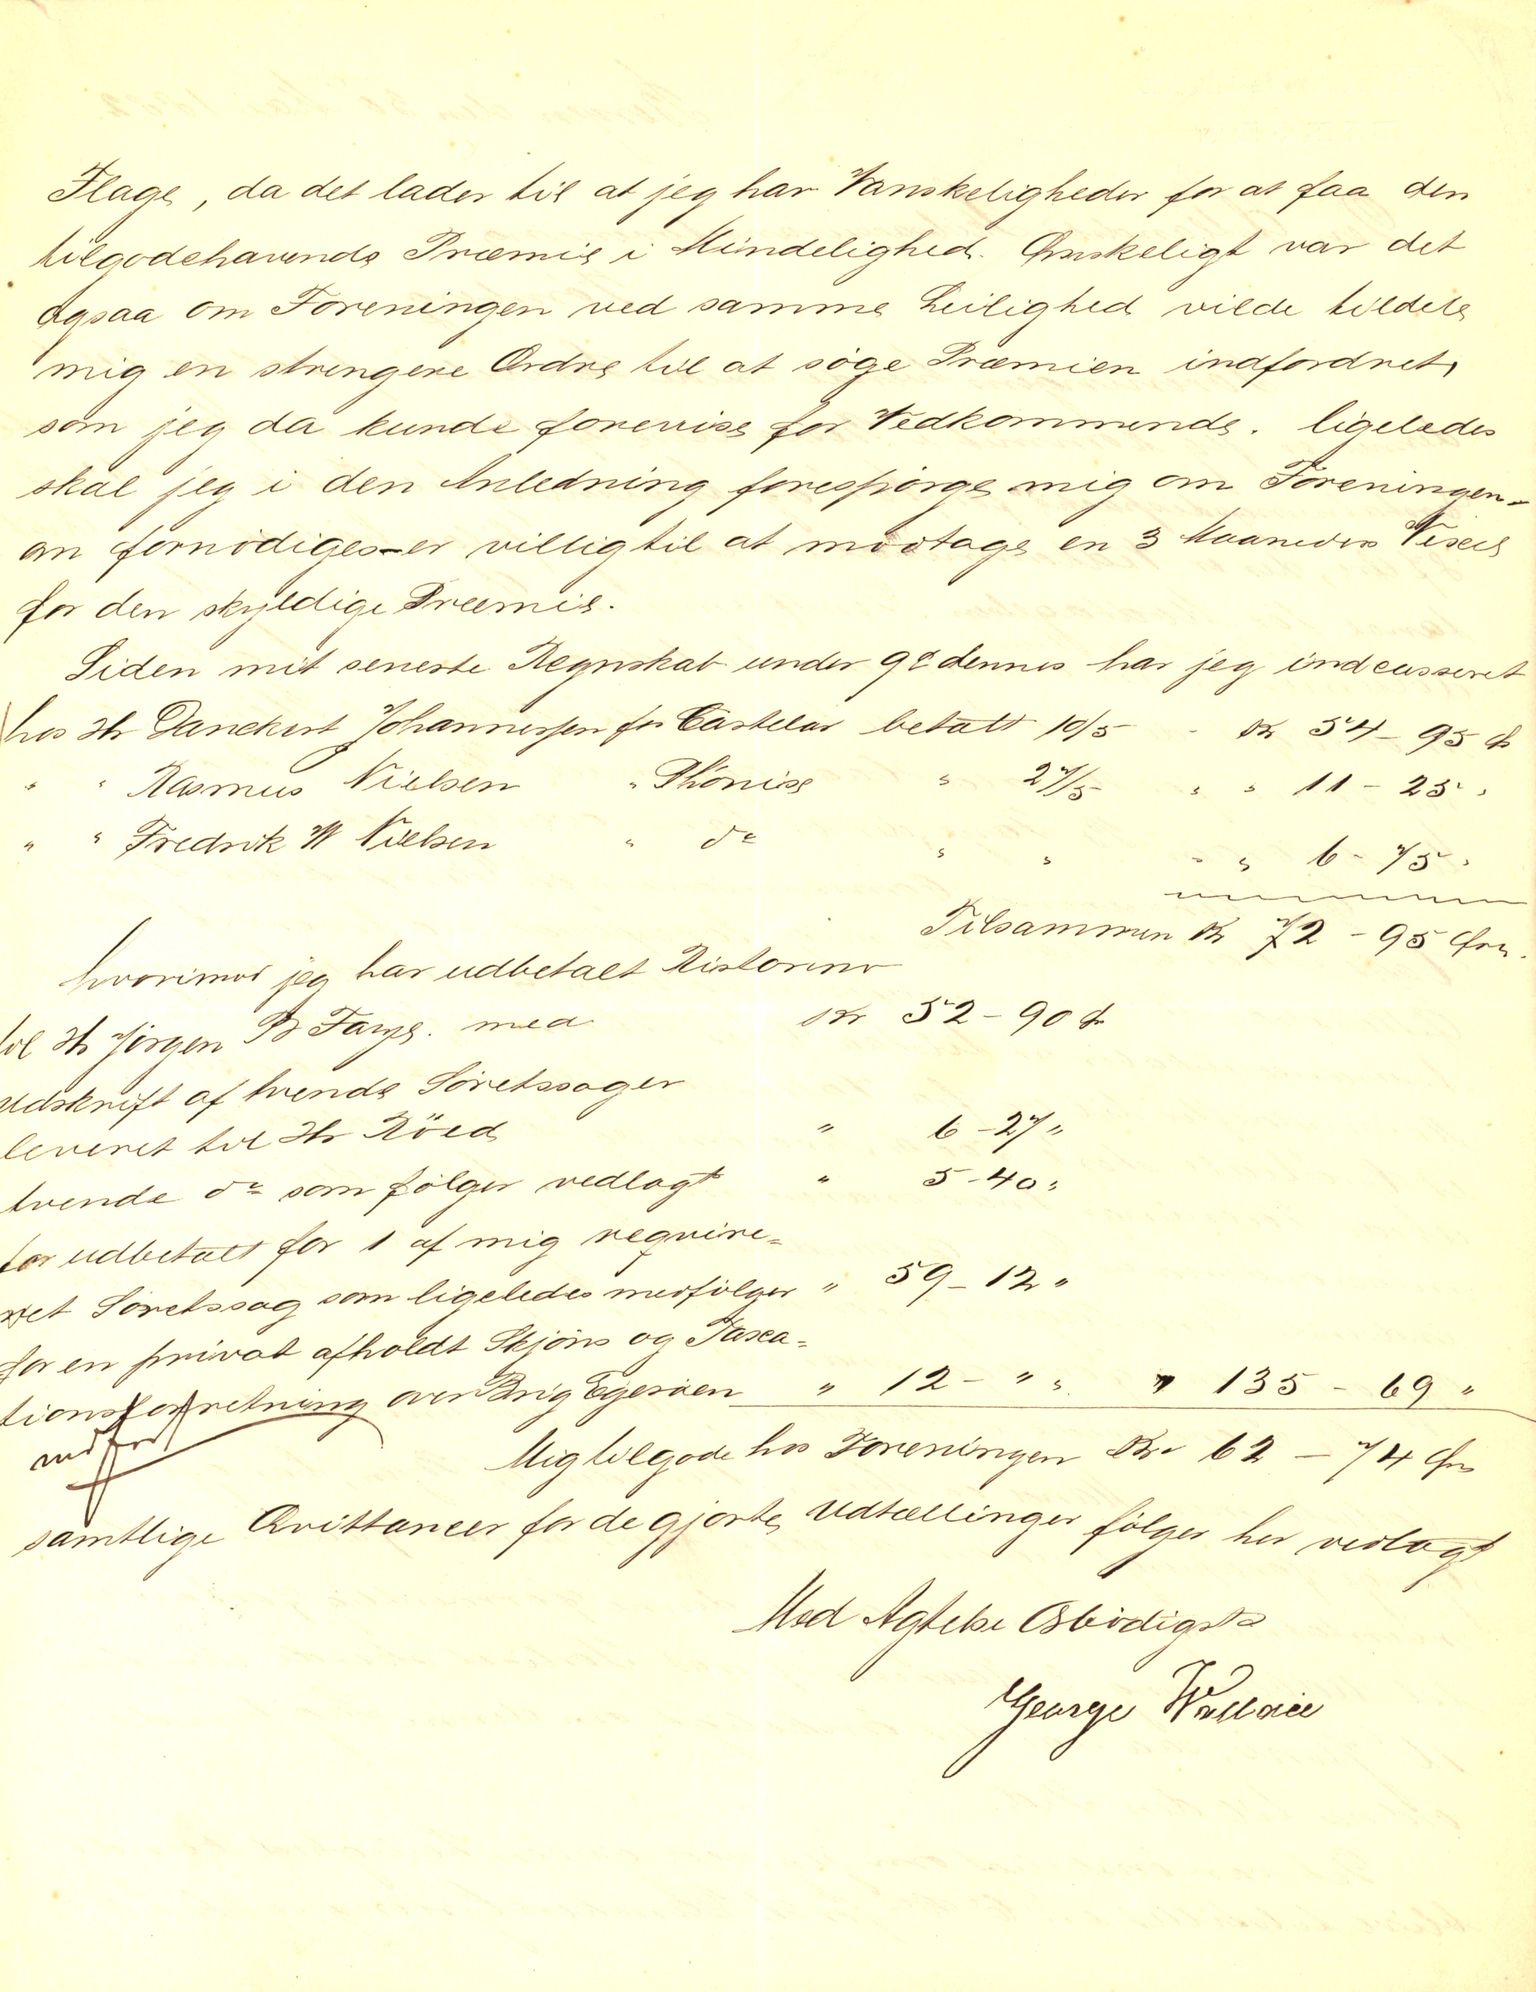 Flage, da det lader til at jeg har Vanskeligheder for at faa den
tilgodehavende Præmie i Mindelighed. Ønskeligt var det
ogsaa om Foreningen ved samme Leilighed vilde tildele
mig en strengere Ordre til at søge Præmien indfordret,
som jeg da kunde forevise for Vedkommende. ligeledes
skal jeg i den Anledning forespørge mig om Foreningen-
om fornødiges-er villig til at modtage en 3 Maaneders Vexel
for den skyldige Præmie.
Siden mit seneste Regnskab under 9de dennes har jeg indcasseret
hos Hr Danckert Johannessen for Castelar betalt 10/5 - Kr 54-95 Ø
" " Rasmus Nielsen " Phønix " 27/5 " " 11-25 "
" " Fredrik W Nielsen " do " " " " 6-75 "
Tilsammen Kr 72-95 Øre.
hvorimod jeg har udbetalt Ristorno
til Hr Jørgen B Faye. med Kr 52-90 Ø
Udskrift af tvende Søretssager
leveret til Hr Röed " 6-27 "
tvende do som følger vedlagt " 5-40 "
for udbetalt for 1 af mig require=
ret Søretssag som ligeledes medfølger " 59-12 "
for en privat afholdt Skjøns og Taxa=
tionsforretning over Brig Egerøen " 12- " " " 135-69 "
Mig tilgode hos Foreningen Kr 62-74 Øre
samtlige Qvittancer for de gjorte Udtællinger følger her vedlagt
Med Agtelse Ærbødigst
George Wallace